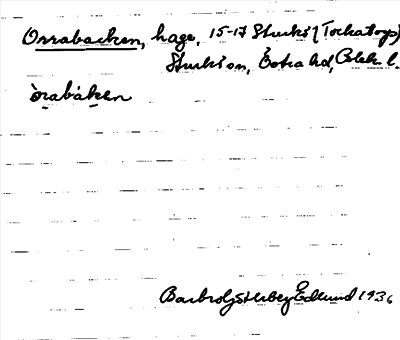 Orrabacken, hage, 15-17 Sturkö (Tockatorp)
Sturkö sn, Östra hd, Blek. l.
òrabáken
Barbro Söderberg Edlund 1936